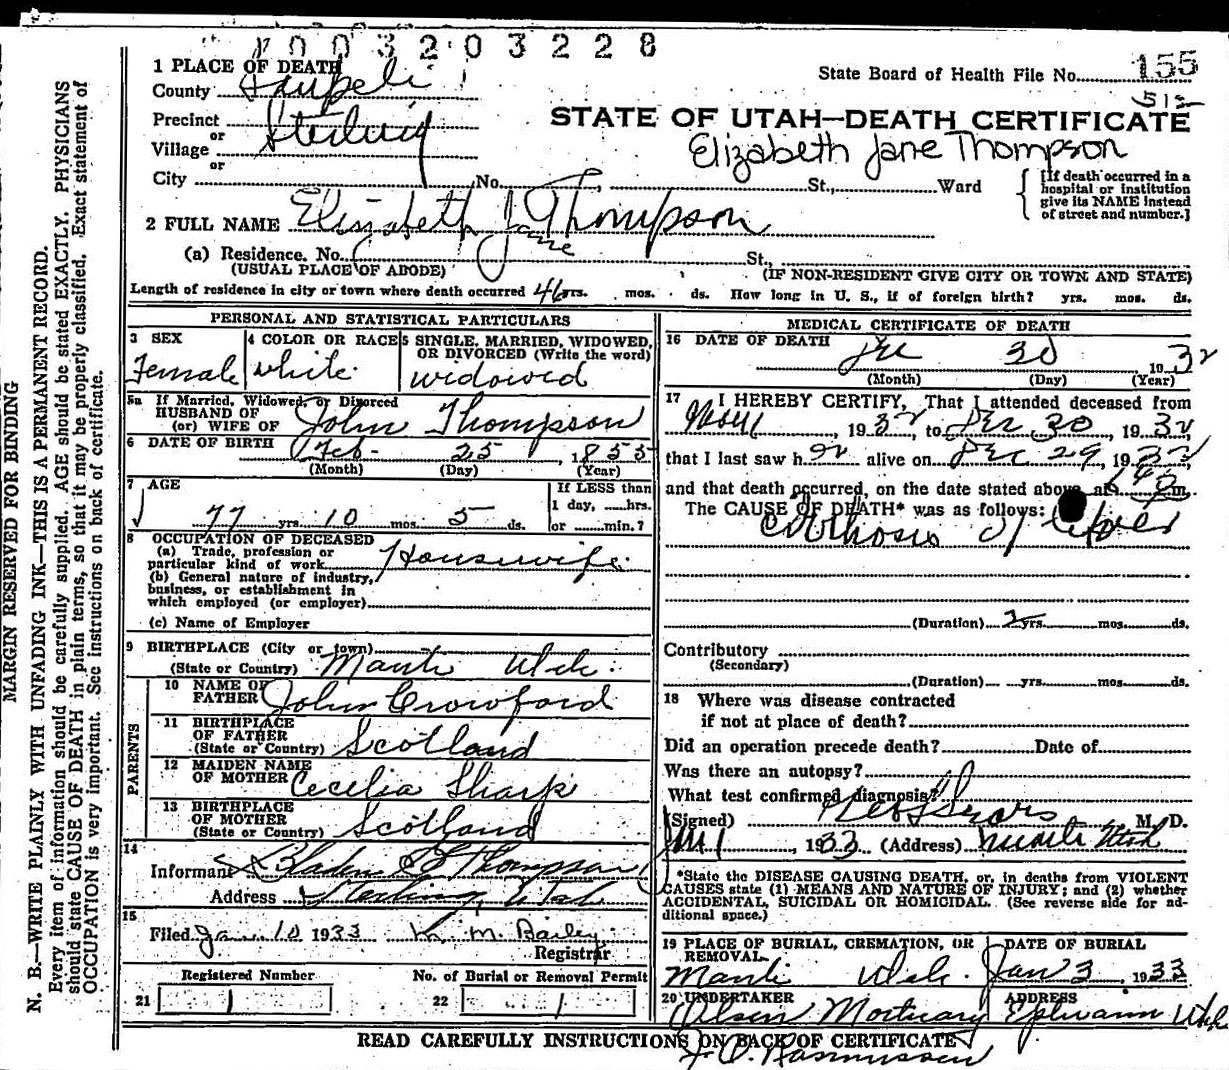 1003203228
State Board of Health File No. 155
1 PLACE OF DEATH
County Sanpete
Precinct Sterling
or
Village
or
City No. St., Ward
STATE OF UTAH—DEATH CERTIFICATE
Elizabeth Jane Thompson
[If death occurred in a hospital or institution give its NAME instead of street and number.]
2 FULL NAME Elizabeth Jane Thompson
(a) Residence. No. St.,
(USUAL PLACE OF ABODE) (IF NON-RESIDENT GIVE CITY OR TOWN AND STATE)
Length of residence in city or town where death occurred 46 yrs. mos. ds. How long in U. S., if of foreign birth? yrs. mos. ds.
PERSONAL AND STATISTICAL PARTICULARS
3 SEX Female
4 COLOR OR RACE white
5 SINGLE, MARRIED, WIDOWED, OR DIVORCED (Write the word) widowed
5a If Married, Widowed, or Divorced
HUSBAND OF
(or) WIFE OF John Thompson
6 DATE OF BIRTH Feb. 25, 1855
(Month) (Day) (Year)
7 AGE
77 yrs. 10 mos. 5 ds.
If LESS than
1 day, hrs.
or min.?
8 OCCUPATION OF DECEASED
(a) Trade, profession or
particular kind of work Housewife
(b) General nature of industry,
business, or establishment in
which employed (or employer)
(c) Name of Employer
9 BIRTHPLACE (City or town)
(State or Country) Manti Utah.
PARENTS
10 NAME OF
FATHER John Crowford
11 BIRTHPLACE
OF FATHER
(State or Country) Scotland
12 MAIDEN NAME
OF MOTHER Cecelia Sharp
13 BIRTHPLACE
OF MOTHER
(State or Country) Scotland
14
Informant Thompson
Address Sterling, Utah
15
Filed Jan. 10 1933 K. M. Bailey
Registrar
Registered Number No. of Burial or Removal Permit
21 22
MEDICAL CERTIFICATE OF DEATH
16 DATE OF DEATH Dec 30 1932
(Month) (Day) (Year)
17 I HEREBY CERTIFY, That I attended deceased from
1932, to Dec 30, 1932
that I last saw her alive on Dec 29, 1932
and that death occurred, on the date stated above, at m.
The CAUSE OF DEATH* was as follows:
Cirrhosis of Liver
(Duration) 2 yrs. mos. ds.
Contributory
(Secondary)
(Duration) yrs. mos. ds.
18 Where was disease contracted
if not at place of death?
Did an operation precede death? Date of
Was there an autopsy?
What test confirmed diagnosis?
(Signed) M. D.
Jan 1, 1933 (Address) Manti Utah
*State the DISEASE CAUSING DEATH, or, in deaths from VIOLENT
CAUSES state (1) MEANS AND NATURE OF INJURY; and (2) whether
ACCIDENTAL, SUICIDAL OR HOMICIDAL. (See reverse side for ad-
ditional space.)
19 PLACE OF BURIAL, CREMATION, OR
REMOVAL Manti Utah.
DATE OF BURIAL
Jan 3, 1933
20 UNDERTAKER ADDRESS
Olsen Mortuary Ephraim Utah
READ CAREFULLY INSTRUCTIONS ON BACK OF CERTIFICATE
Rasmussen
MARGIN RESERVED FOR BINDING
N. B.—WRITE PLAINLY WITH UNFADING INK—THIS IS A PERMANENT RECORD.
Every item of information should be carefully supplied. AGE should be stated EXACTLY. PHYSICIANS
should state CAUSE OF DEATH in plain terms, so that it may be properly classified. Exact statement of
OCCUPATION is very important. See instructions on back of certificate.